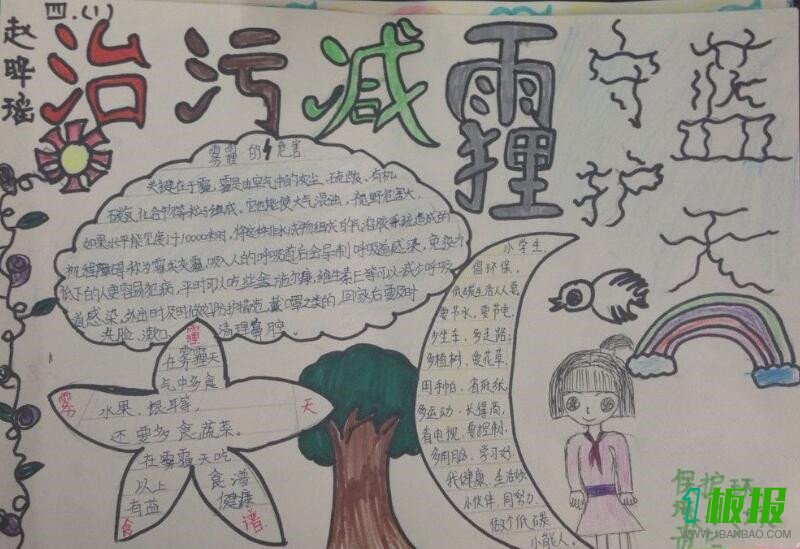 四.(1)
赵晔瑶
治污减霾
守护蓝天
雾霾的危害
关键在于霾,霾是由空气中的灰尘、硫酸、有机
碳氢化合物等粒子组成。它也能使大气混浊,视野
如果水平能见度小于10000米时,将这种非水成物组成的气溶胶系统造成的
视程障碍称为霾灰霾,吸入人的呼吸道后会导制呼吸道感染,免疫力
低下的人更容易犯病,平时可人吃些维生素E等可以减少呼吸
道感染,外出时及时做好防护措施,戴口罩之类的,回家后要及时
洗脸、漱口、清理鼻腔。
雾霾天食谱
在雾霾天
气中多食
水果、根耳等,
还要多食蔬菜。
在雾霾天吃
以上食谱
有益健康
小学生,
倡环保,
低碳生活人人要,
要节水,要节电,
少坐车,多走路;
多植树,爱花草,
用手帕,省纸,
多运动,长得高,
看电视,要控制,
多用脑,学习好,
我健康,生活妙,
小伙伴,同努力,
做个低碳
小能人。
保护环
1板报
WWW.1BANBAO.COM